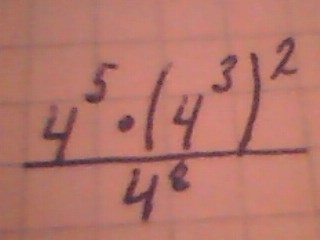 4^5 · (4^3)^2
4^8